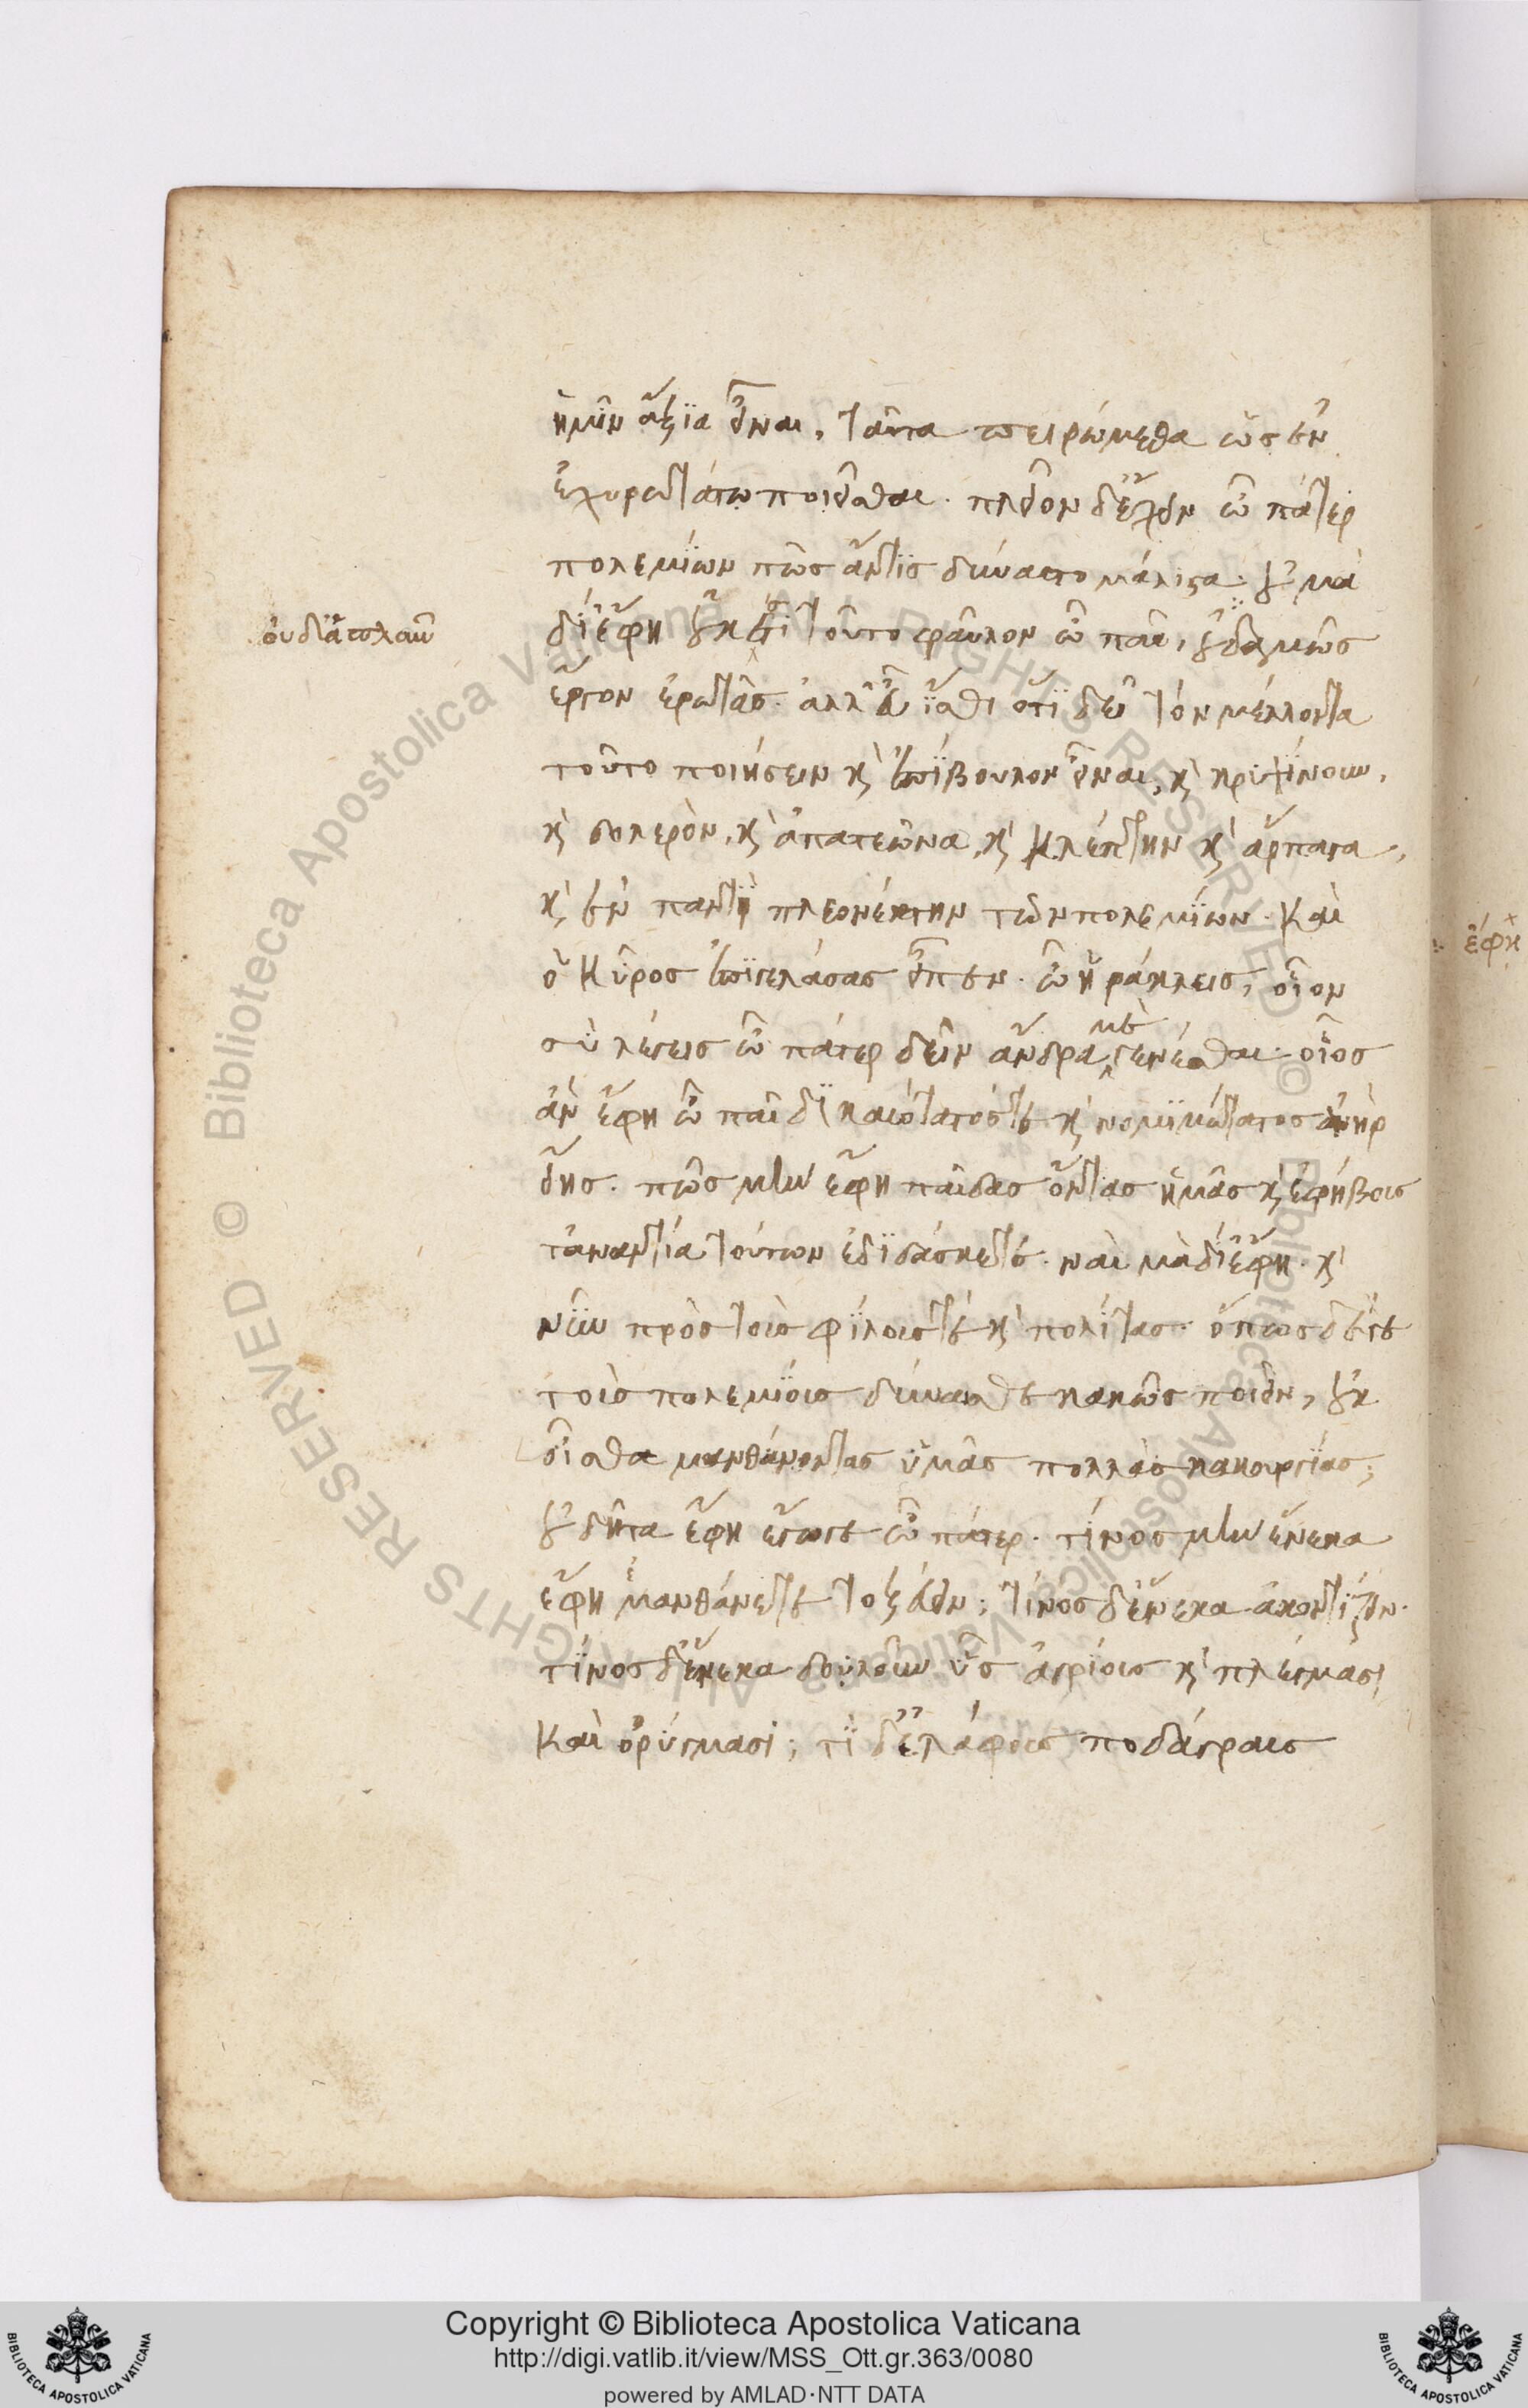 ἡμῖν ἄξια εἶναι, ταῦτα πειρώμεθα ὡς ἐν
ἐχυρωτάτω ποιεῖσθαι. πλεῖον δ' ἔχειν ὦ πάτερ
πολεμίων πῶς ἄν τις δύναιτο μάλιστα. οὐ μὰ
οὐδ' ἁπλοῦν
δί' ἔφη οὐκέτι τοῦτο φαῦλον ὦ παῖ, οὐδαμῶς
ἔργον ἐρωτᾶς. ἀλλ' εὖ ἴσθι ὅτι δεῖ τὸν μέλλοντα
τοῦτο ποιήσειν καὶ ἐπίβουλον εἶναι, καὶ κρυψίνουν,
καὶ δολερὸν, καὶ ἀπατεῶνα, καὶ κλέπτην καὶ ἅρπαγα,
καὶ ἐν παντὶ πλεονέκτην τῶν πολεμίων. Καὶ
ὁ Κῦρος ἐπιγελάσας εἶπεν. ὦ ἡράκλεις, οἷον
σὺ λέγεις ὦ πάτερ δεῖν ἄνδρα με γενέσθαι. οἷος
ἂν ἔφη ὦ παῖ δικαιότατός τε καὶ νομιμώτατος ἀνὴρ
εἴης. πῶς μὴν ἔφη παῖδας ὄντας ἡμᾶς καὶ ἐφήβους
τἀναντία τούτων ἐδιδάσκετε. ναὶ μὰ δί' ἔφη. καὶ
νῦν πρὸς τοὺς φίλους τε καὶ πολίτας. ὅπως δέ γε
τοὺς πολεμίους δύναισθε κακῶς ποιεῖν, οὐκ
οἶσθα μανθάνοντας ὑμᾶς πολλὰς κακουργίας;
οὐ δῆτα ἔφη ἔγωγε ὦ πάτερ. τίνος μὴν ἕνεκα
ἔφη ἐμανθάνετε τοξεύειν; τίνος δ' ἕνεκα ἀκοντίζειν.
τίνος δ' ἕνεκα δολοῦν ὗς ἀγρίους καὶ πλέγμασι
Καὶ ὀρύγμασι; τί δ' ἐλάφους ποδάγραις
ἔφη
Copyright © Biblioteca Apostolica Vaticana
http://digi.vatlib.it/view/MSS_Ott.gr.363/0080
powered by AMLAD·NTT DATA